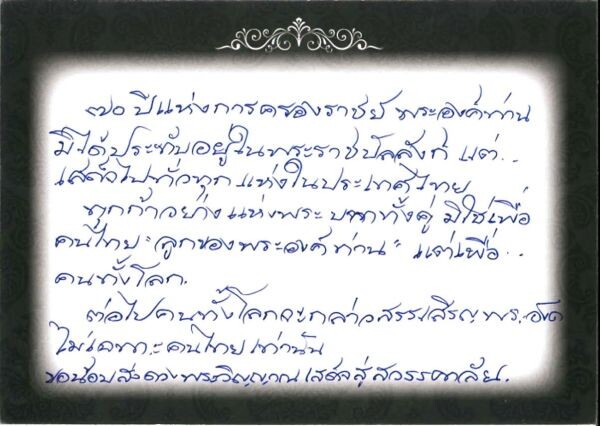 ๗๐ ปีแห่งการครองราชย์ พระองค์ท่าน
มิได้ประทับอยู่ในพระราชบัลลังก์ แต่..
เสด็จไปทั่วทุกแห่งในประเทศไทย
ทุกก้าวย่างแห่งพระบาททั้งคู่ มิใช่เพื่อ
คนไทย "ลูกของพระองค์ท่าน" แต่เพื่อ..
คนทั้งโลก.
ต่อไปคนทั้งโลกจะกล่าวสรรเสริญพระองค์
ไม่เฉพาะคนไทยเท่านั้น
ขอน้อมส่งดวงพระวิญญาณเสด็จสู่สวรรคาลัย.